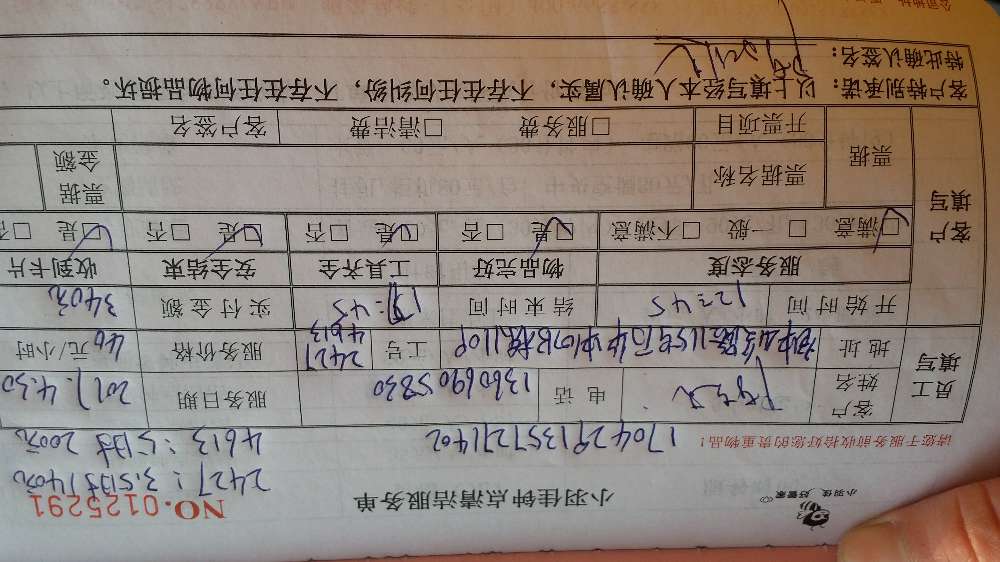 小羽佳 好管家
小羽佳钟点清洁服务单
NO.0125291
2427：3.5时140元
4613：5时200元
请您于服务前收拾好您的贵重物品！
17042913572711402
员工填写
客户姓名
电话 13606905830
服务日期 2017.4.30
地址
工号 2427 4613
服务价格 40元/小时
开始时间 12:45
结束时间 17:45
实付金额 340元
客户填写
服务态度 物品完好 工具齐全 安全结束 收到卡片
□满意 □一般 □不满意 □是 □否 □是 □否 □是 □否 □是 □否
票据 票据名称 票据金额
开票项目 □服务费 □清洁费 客户签名
客户特别承诺：以上填写经本人确认属实，不存在任何纠纷，不存在任何物品损坏。
特此确认签名：